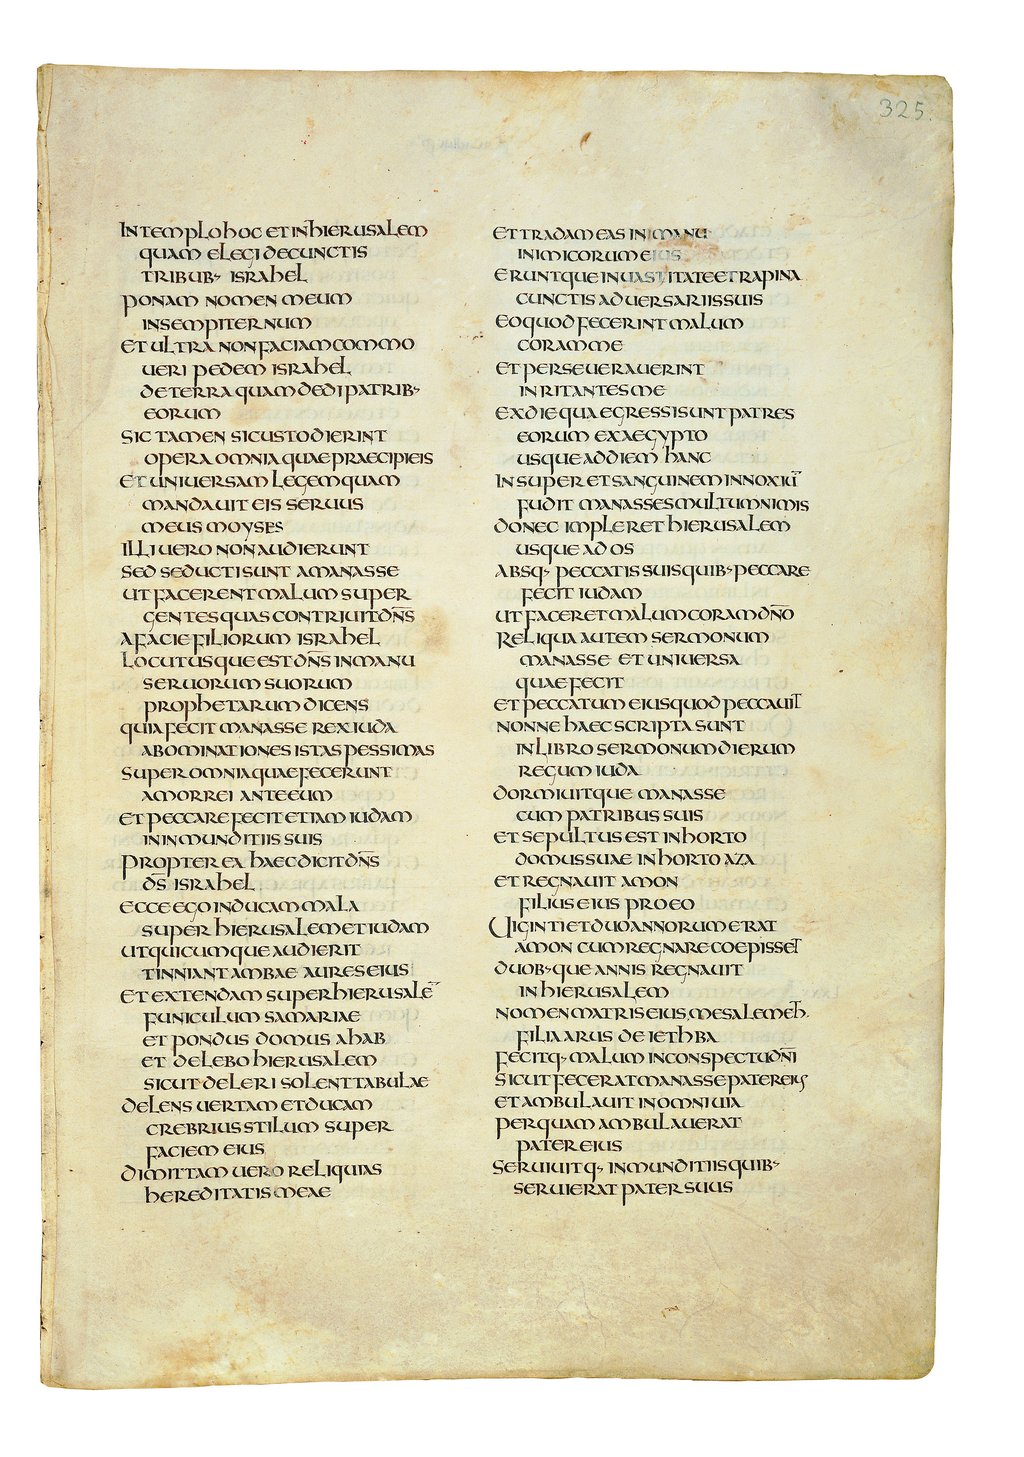 325.
IN TEMPLO HOC ET IN HIERUSALEM
QUAM ELEGI DE CUNCTIS
TRIBUB· ISRAHEL
PONAM NOMEN MEUM
IN SEMPITERNUM
ET ULTRA NON FACIAM COMMO
UERI PEDEM ISRAHEL
DE TERRA QUAM DEDI PATRIB·
EORUM
SIC TAMEN SI CUSTODIERINT
OPERA OMNIA QUAE PRAECIPIEIS
ET UNIUERSAM LEGEM QUAM
MANDAUIT EIS SERUUS
MEUS MOYSES
ILLI UERO NON AUDIERUNT
SED SEDUCTI SUNT A MANASSE
UT FACERENT MALUM SUPER
GENTES QUAS CONTRIUIT DN̅S
A FACIE FILIORUM ISRAHEL
LOCUTUSQUE EST DN̅S IN MANU
SERUORUM SUORUM
PROPHETARUM DICENS
QUIA FECIT MANASSE REX IUDA
ABOMINATIONES ISTAS PESSIMAS
SUPER OMNIA QUAE FECERUNT
AMORREI ANTE EUM
ET PECCARE FECIT ETIAM IUDAM
IN INMUNDITIIS SUIS
PROPTEREA HAEC DICIT DN̅S
DS̅ ISRAHEL
ECCE EGO INDUCAM MALA
SUPER HIERUSALEM ET IUDAM
UT QUICUMQUE AUDIERIT
TINNIANT AMBAE AURES EIUS
ET EXTENDAM SUPER HIERUSALE̅
FUNICULUM SAMARIAE
ET PONDUS DOMUS AHAB
ET DELEBO HIERUSALEM
SICUT DELERI SOLENT TABULAE
DELENS UERTAM ET DUCAM
CREBRIUS STILUM SUPER
FACIEM EIUS
DIMITTAM UERO RELIQUIAS
HEREDITATIS MEAE
ET TRADAM EAS IN MANU
INIMICORUM EIUS
ERUNTQUE IN UASTITATE ET RAPINA
CUNCTIS ADUERSARIIS SUIS
EO QUOD FECERINT MALUM
CORAM ME
ET PERSEUERAUERINT
INRITANTES ME
EX DIE QUA EGRESSI SUNT PATRES
EORUM EX AEGYPTO
USQUE AD DIEM HANC
INSUPER ET SANGUINEM INNOXIU̅
FUDIT MANASSES MULTUM NIMIS
DONEC IMPLERET HIERUSALEM
USQUE AD OS
ABSQ· PECCATIS SUIS QUIB· PECCARE
FECIT IUDAM
UT FACERET MALUM CORAM DN̅O
RELIQUA AUTEM SERMONUM
MANASSE ET UNIUERSA
QUAE FECIT
ET PECCATUM EIUS QUOD PECCAUIT
NONNE HAEC SCRIPTA SUNT
IN LIBRO SERMONUM DIERUM
REGUM IUDA
DORMIUITQUE MANASSE
CUM PATRIBUS SUIS
ET SEPULTUS EST IN HORTO
DOMUS SUAE IN HORTO AZA
ET REGNAUIT AMON
FILIUS EIUS PRO EO
UIGINTI ET DUO ANNORUM ERAT
AMON CUM REGNARE COEPISSET
DUOB·QUE ANNIS REGNAUIT
IN HIERUSALEM
NOMEN MATRIS EIUS MESALEMETH.
FILIA ARUS DE IETHBA
FECITQ· MALUM IN CONSPECTU DN̅I
SICUT FECERAT MANASSE PATER EIUS
ET AMBULAUIT IN OMNI UIA
PER QUAM AMBULAUERAT
PATER EIUS
SERUIUITQ· INMUNDITIIS QUIB·
SERUIERAT PATER SUUS